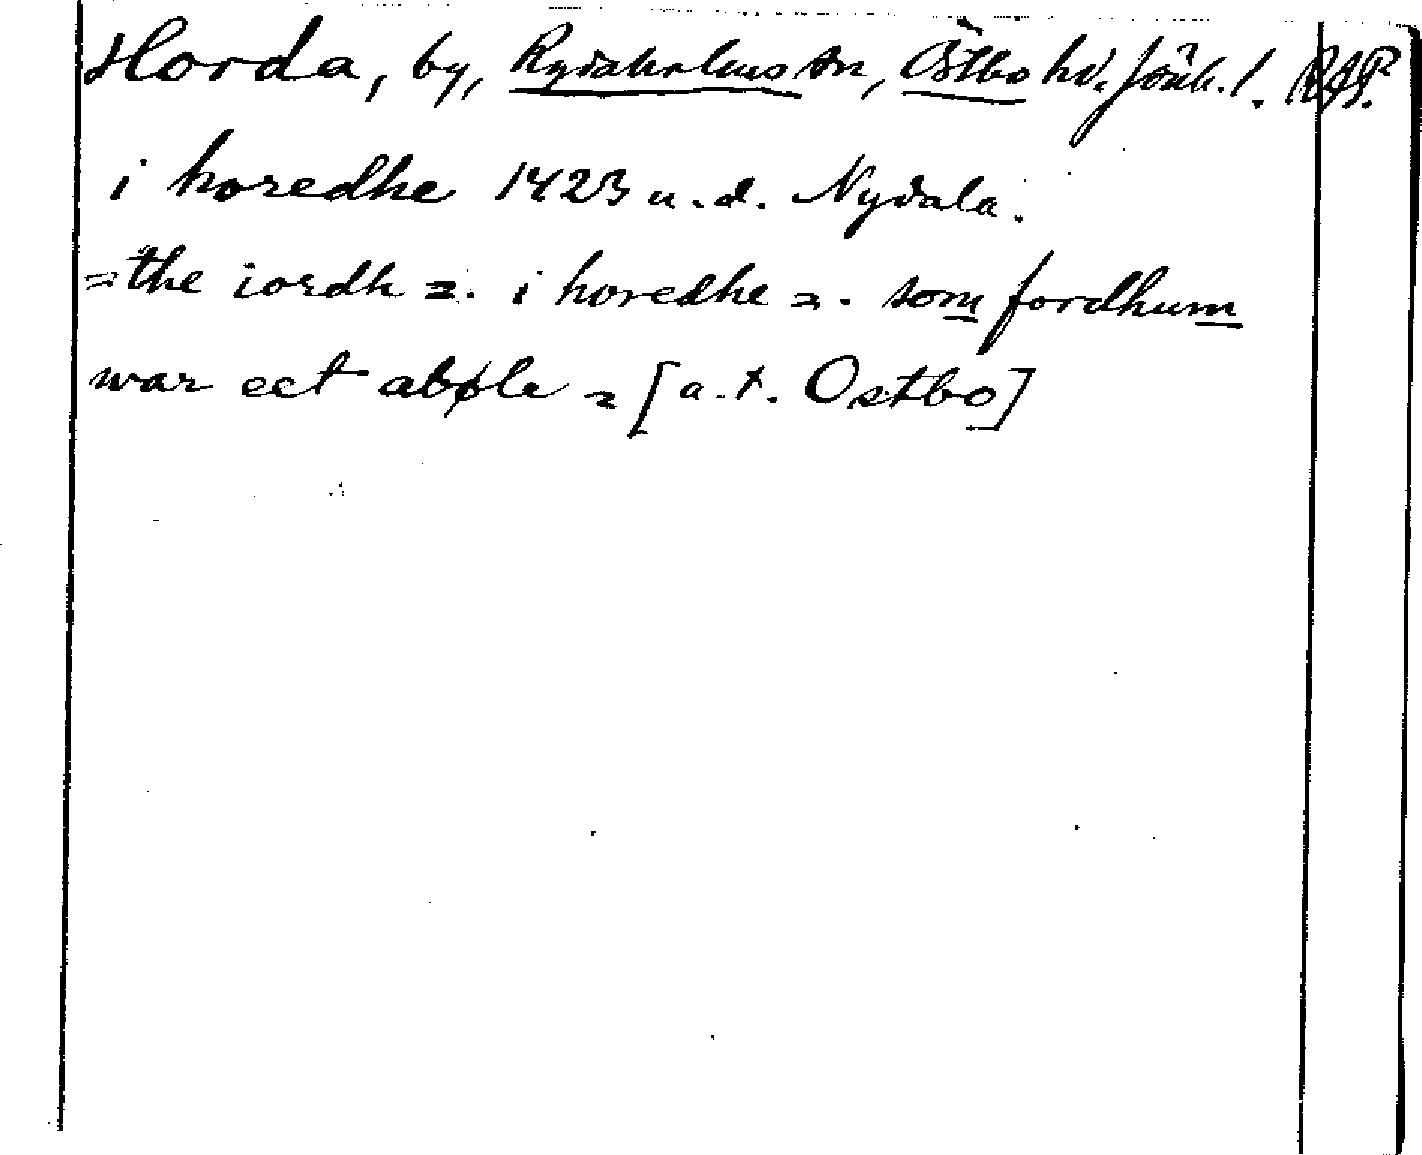 Horda, by, Rydaholms sn, Östbo hd. Jönk. l. RAP.
i horedhe 1423 u.d. Nydala.
= the iordh =. i horedhe =. som fordhum
war eet abøle = [a.t. Ostbo]